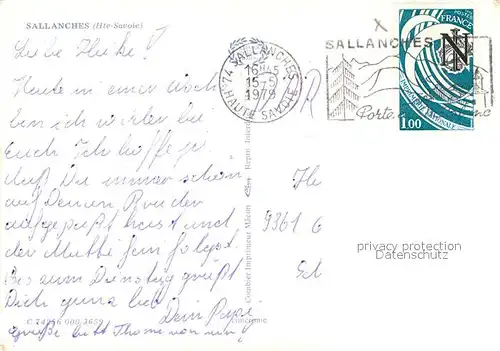 SALLANCHES (Hte-Savoie)
Liebe Heike!
Heute in einer Woch
bin ich wieder bei
Euch. Ich hoffe ja
daß Du immer schön
auf Deinen Bruder
aufgepaßt hast und
der Mutti fein folgst.
Bis zum Dienstag grüßt
Dich ganz lieb
Dein Papi
grüße bitte Thomas von mir
C 74256 000 3659
Combier Imprimeur Mâcon
74 SALLANCHES
16H45
15-5
1979
HAUTE SAVOIE
SALLANCHES
Porte
POSTES
FRANCE
N
IMPRIMERIE NATIONALE
1,00
9361 G
privacy protection
Datenschutz